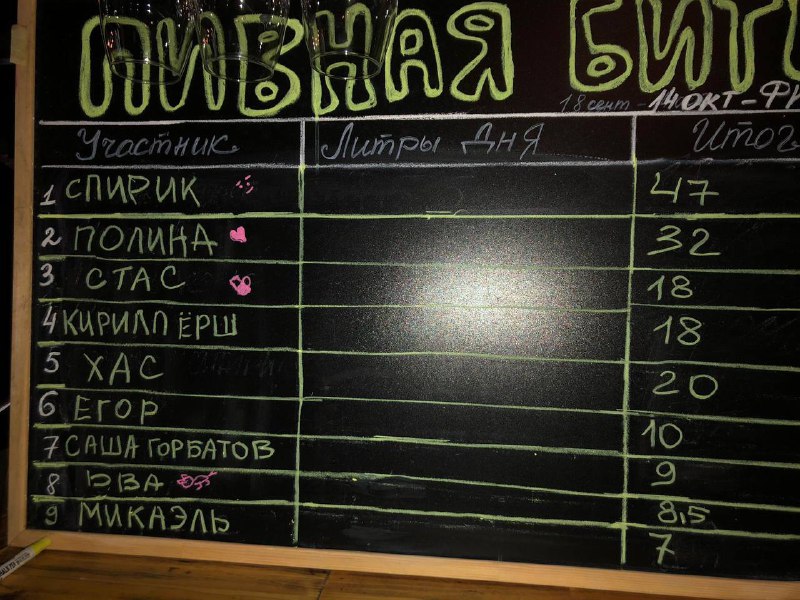 ПИВНАЯ БИТ
18 сент - 14 ОКТ - ФИ
Участник Литры Дня Итог
1 СПИРИК 47
2 ПОЛИНА 32
3 СТАС 18
4 КИРИЛЛ ЁРШ 18
5 ХАС 20
6 ЕГОР 10
7 САША ГОРБАТОВ 9
8 ЭВА 8,5
9 МИКАЭЛЬ 7